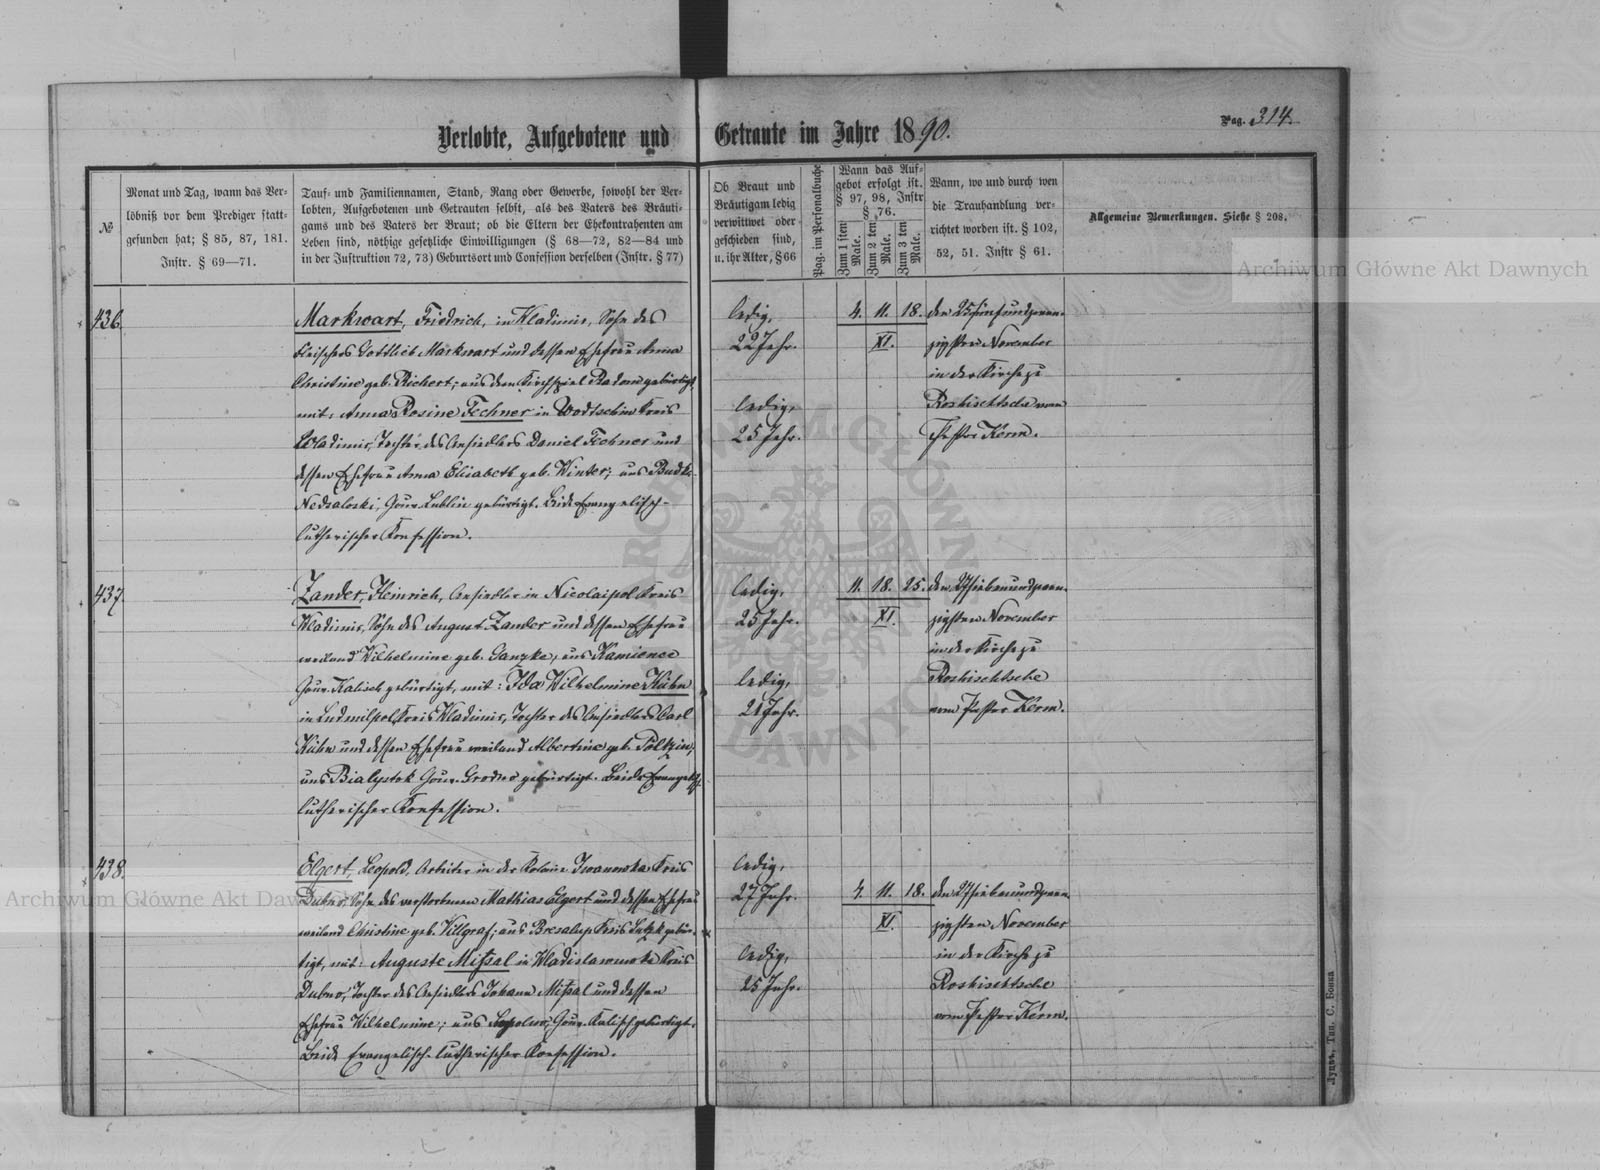 Verlobte, Aufgebotene und Getraute im Jahre 1890.
Pag. 314.
№
Monat und Tag, wann das Ver-
löbniß vor dem Prediger statt-
gefunden hat; § 85, 87, 181.
Instr. § 69—71.
Tauf- und Familiennamen, Stand, Rang oder Gewerbe, sowohl der Ver-
lobten, Aufgebotenen und Getrauten selbst, als des Vaters des Bräuti-
gams und des Vaters der Braut; ob die Eltern der Ehekontrahenten am
Leben sind, nöthige gesetzliche Einwilligungen (§ 68—72, 82—84 und
in der Instruktion 72, 73) Geburtsort und Confession derselben (Instr. § 77)
Ob Braut und
Bräutigam ledig
verwittwet oder
geschieden sind,
u. ihr Alter, § 66
Pag. im Personalbuche
Wann das Auf-
gebot erfolgt ist.
§ 97, 98, Instr
§ 76.
Zum 1 sten
Male.
Zum 2 ten
Male.
Zum 3 ten
Male.
Wann, wo und durch wen
die Trauhandlung ver-
richtet worden ist. § 102,
52, 51. Instr § 61.
Allgemeine Bemerkungen. Siehe § 208.
436.
Markwart, Friedrich, in Wladimir, Sohn des
Fleischers Gottlieb Markwart und dessen Ehefrau Anna
Christine geb. Richert; aus dem Kirchspiel Radom gebürtigt,
mit: Anna Rosine Fechner in Wodtschin Kreis
Wladimir, Tochter des Ansiedlers Daniel Fechner und
dessen Ehefrau Anna Elisabeth geb. Winter; aus Budki-
Nedzaloski, Gouv. Lublin gebürtigt. Beide Evangelisch-
lutherischer Konfession.
ledig,
22 Jahr.
ledig,
25 Jahr.
4. 11. 18.
XI.
den 25 fünfundzwan-
zigsten November
in der Kirche zu
Roshischtsche vom
Pastor Kerm.
437.
Zander, Heinrich, Ansiedler in Nicolaipol Kreis
Wladimir, Sohn des August Zander und dessen Ehefrau
weiland Wilhelmine geb. Ganzke, aus Kamience
Gouv. Kalisch gebürtigt, mit: Ida Wilhelmine Kühn
in Ludmilpol, Kreis Wladimir, Tochter des Ansiedlers Carl
Kühn und dessen Ehefrau weiland Albertine geb. Poltzin,
aus Bialystok Gouv. Grodno gebürtigt. Beide Evangelisch
lutherischer Konfession.
ledig,
25 Jahr.
ledig,
21 Jahr.
11. 18. 25.
XI.
den 27 siebenundzwan-
zigsten November
in der Kirche zu
Roshischtsche
vom Pastor Kerm.
438.
Elgert, Leopold, Arbeiter in der Kolonie Iwanowka Kreis
Dubno, Sohn des verstorbenen Mathias Elgert und dessen Ehefrau
weiland Christine geb. Villgraf; aus Bresalup Kreis Lutzk gebür-
tigt, mit: Auguste Mißal in Wladislawowka Kreis
Dubno, Tochter des Ansiedlers Johann Mißal und dessen
Ehefrau Wilhelmine; aus Gouv. Kalisch gebürtigt.
Beide Evangelisch-lutherischer Konfession.
ledig,
27 Jahr.
ledig,
25 Jahr.
4. 11. 18.
XI.
den 27 siebenundzwan-
zigsten November
in der Kirche zu
Roshischtsche
vom Pastor Kerm.
Луцкъ, Тип. С. Бонка
Archiwum Główne Akt Dawnych
Archiwum Główne Akt Dawnych